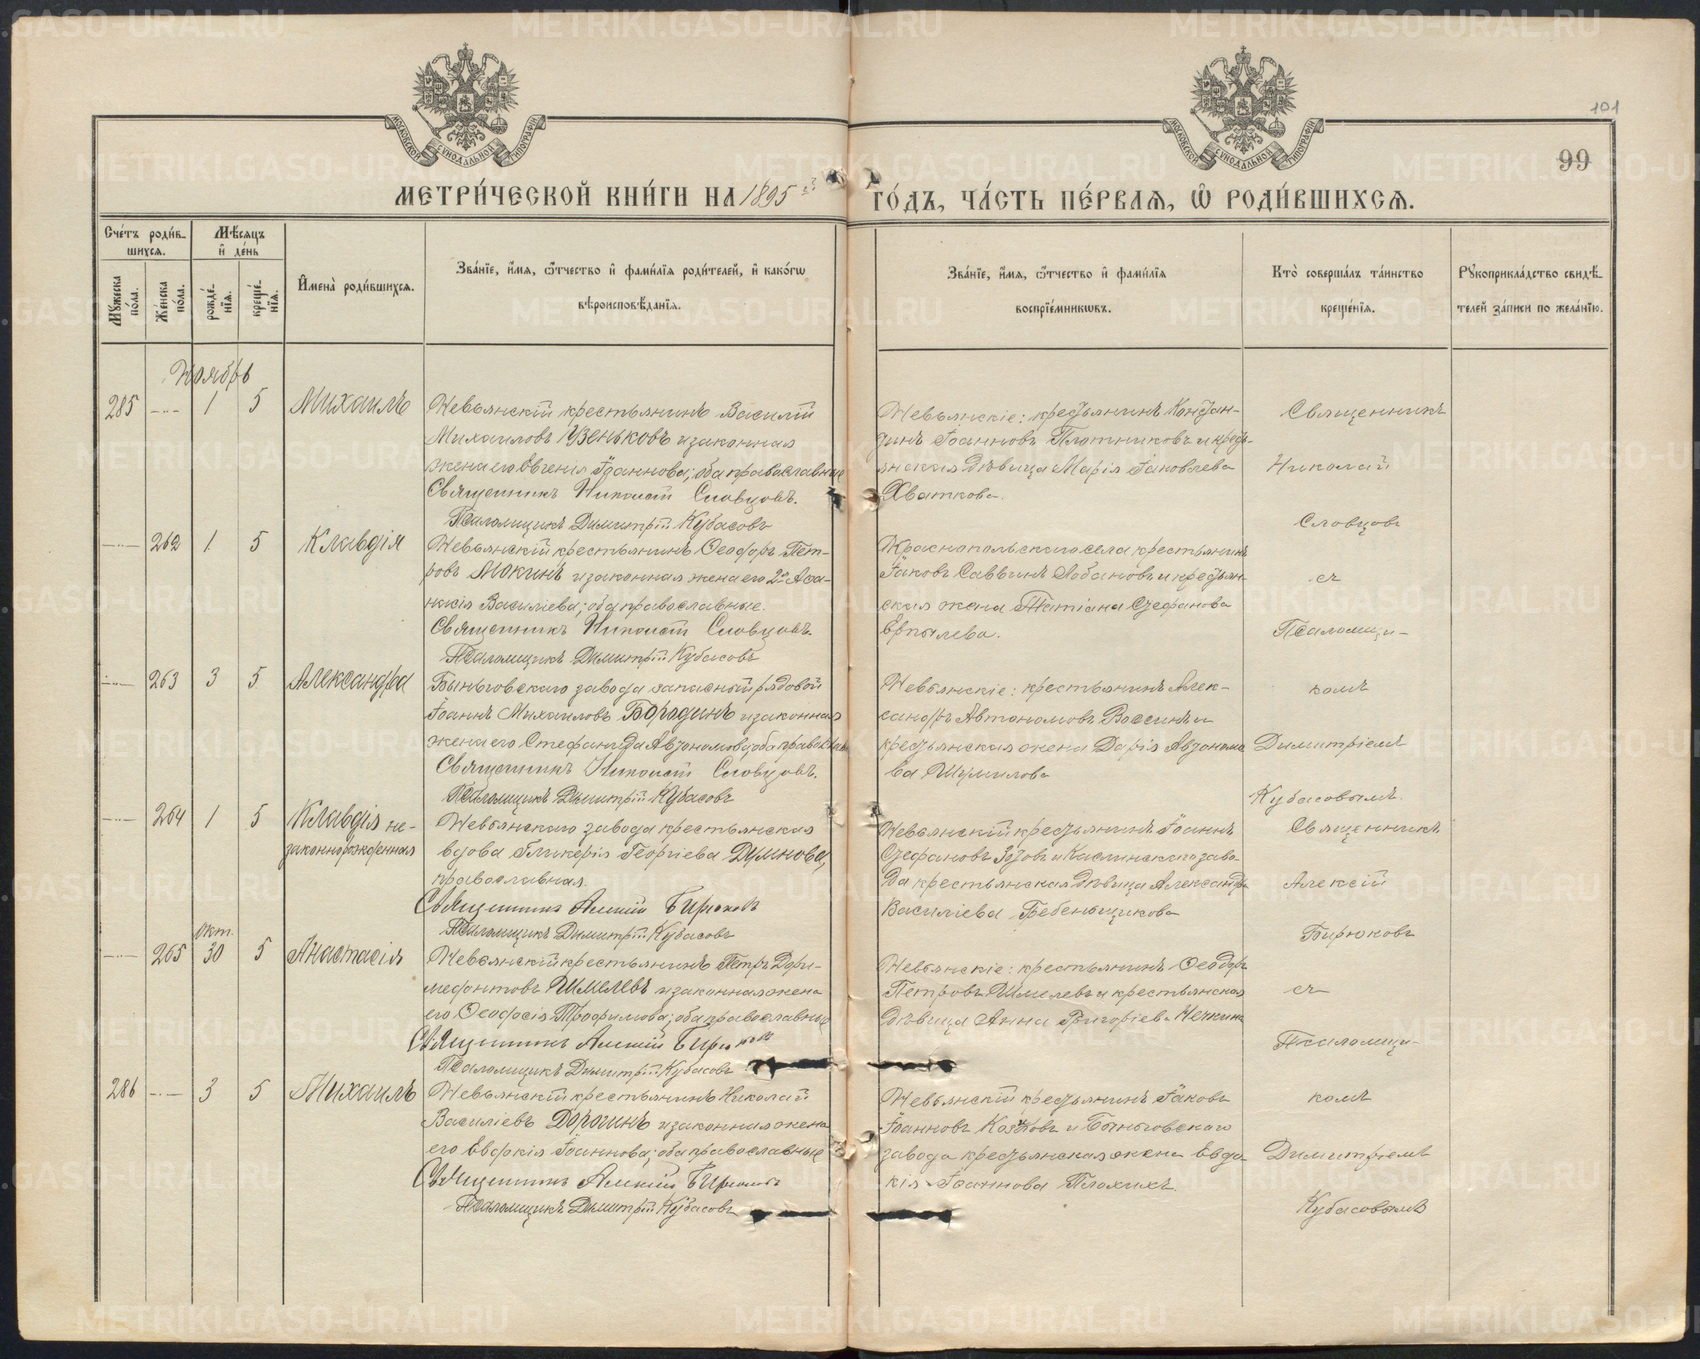 101
99
МОСКОВСКОЙ СѴНОДАЛЬНОЙ ТИПОГРАФІИ
МОСКОВСКОЙ СѴНОДАЛЬНОЙ ТИПОГРАФІИ
МЕТРИ́ЧЕСКОЙ КНИ́ГИ НА 1895 й ГО́ДЪ, ЧА́СТЬ ПЕ́РВАѦ, Ѡ РОДИ́ВШИХСѦ.
Сче́тъ роди́в-
шихсѧ.
Мꙋжеска по́ла.
Же́нска по́ла.
Мѣ́сѧцъ
и҆ де́нь
рожде́-
нїѧ.
креще́-
нїѧ.
И҆мена̀ роди́вшихсѧ.
Зва́нїе, и҆́мѧ, ѻ҆́тчество и҆ фами́лїѧ роди́телей, и҆ како́гѡ
вѣроисповѣ́данїѧ.
Зва́нїе, и҆́мѧ, ѻ҆́тчество и҆ фами́лїѧ
воспрїе́мникѡвъ.
Кто̀ соверша́лъ та́инство
креще́нїѧ.
Рꙋкоприкла́дство свидѣ́-
телей за́писи по жела́нїю.
Ноябрь
285 — 1 5 Михаилъ
Невьянскій крестьянинъ Василій
Михаиловъ Узеньковъ и законная
жена его Евгенія Іоаннова; оба православные
Священникъ Николай Словцовъ.
Псаломщикъ Димитрій Кубасовъ
Невьянскіе: крестьянинъ Констан-
тинъ Іоанновъ Плотниковъ и кресть-
янская дѣвица Марія Іаковлева
Хваткова.
Священникъ
Николай
Словцовъ
— 262 1 5 Клавдія
Невьянскій крестьянинъ Ѳеодоръ Пет-
ровъ Мокинъ и законная жена его 2ая Аѳа-
насія Василіева; оба православные.
Священникъ Николай Словцовъ.
Псаломщикъ Димитрій Кубасовъ
Краснопольскаго села крестьянинъ
Іаковъ Саввинъ Лобановъ и крестьян-
ская жена Татіана Стефанова
съ
Псаломщи-
— 263 3 5 Александра
Быньговскаго завода запасный рядовой
Іоаннъ Михаиловъ Бородинъ и законная
жена его Стефанида Автономова; оба православные
Священникъ Николай Словцовъ.
Псаломщикъ Димитрій Кубасовъ
Невьянскіе: крестьянинъ Алек-
сандръ Автономовъ Вассинъ и
крестьянская жена Дарія Автоно
ва Шумилова
комъ
Димитріемъ
Кубасовымъ.
— 264 1 5 Клавдія не-
законнорожденная
Невьянскаго завода крестьянская
вдова Гликерія Георгіева Думнова,
православная.
Священникъ Алексій Бирюковъ
Псаломщикъ Димитрій Кубасовъ
Невьянскій крестьянинъ Іоаннъ
Стефановъ Зотовъ и Каслинскаго заво-
да крестьянская дѣвица Александра
Василіева Бебенщикова
Священникъ
Алексій
Бирюковъ
Окт.
— 265 30 5 Анастасія
Невьянскій крестьянинъ Петръ Дори-
медонтовъ Шмелевъ и законная жена
его Ѳеодосія Трофимова; оба православные
Священникъ Алексій Бирюковъ
Псаломщикъ Димитрій Кубасовъ
Невьянскіе: крестьянинъ Ѳеодоръ
Петровъ Шмелевъ и крестьянская
дѣвица Анна Григоріева
съ
Псаломщи-
286 — 3 5 Михаилъ
Невьянскій крестьянинъ Николай
Василіевъ Дорогинъ и законная жена
его Евдокія Іоаннова; оба православные
Священникъ Алексій Бирюковъ
Псаломщикъ Димитрій Кубасовъ
Невьянскій крестьянинъ Іаковъ
Іоанновъ Козловъ и Быньговскаго
завода крестьянская жена Евдо-
кія Іоаннова Плохихъ
комъ
Димитріемъ
Кубасовымъ